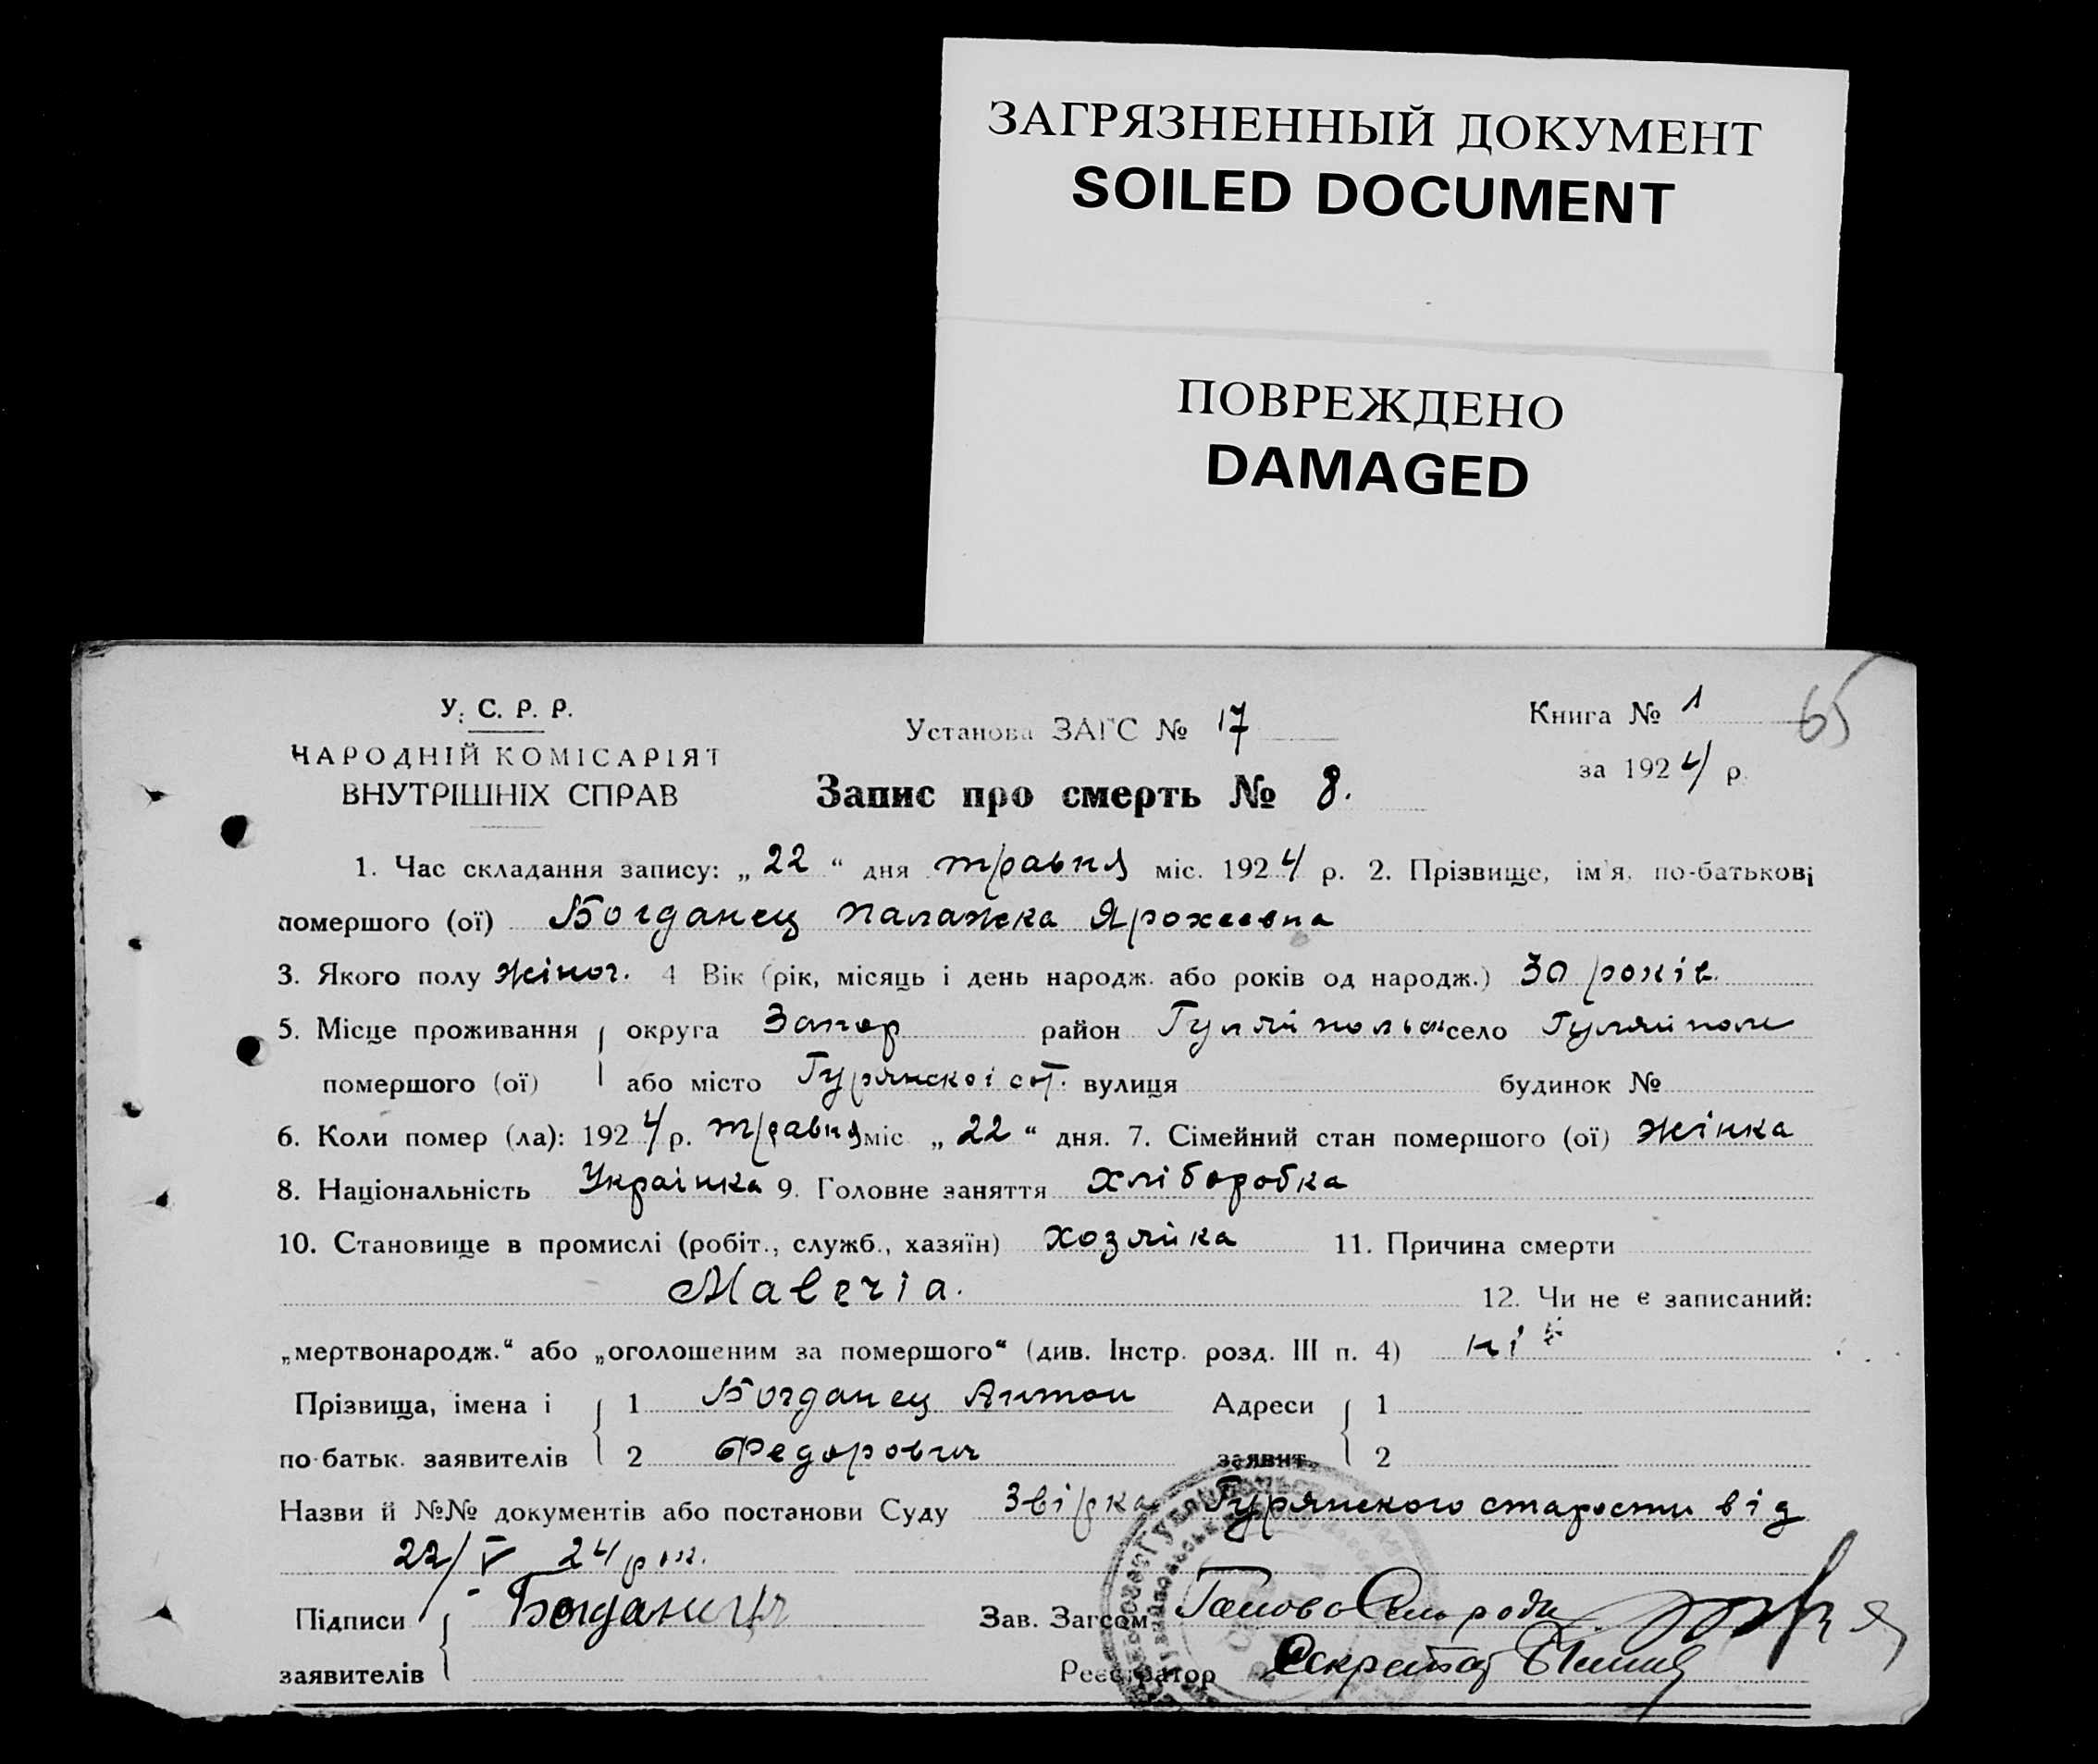 ЗАГРЯЗНЕННЫЙ ДОКУМЕНТ
SOILED DOCUMENT
ПОВРЕЖДЕНО
DAMAGED
65
У. С. Р. Р.
НАРОДНІЙ КОМІСАРІЯТ
ВНУТРІШНІХ СПРАВ
Установа ЗАГС № 17
Запис про смерть № 8.
Книга № 1
за 1924 р.
1. Час складання запису: „22“ дня травня міс. 1924 р. 2. Прізвище, ім'я, по-батькові
помершого (ої) Богданец Палажка Ярохеевна
3. Якого полу жіноч. 4 Вік (рік, місяць і день народж. або років од народж.) 30 років.
5. Місце проживання округа Запор район Гуляйпольск село Гуляйполе
помершого (ої) або місто Гурянскоі сот. вулиця будинок №
6. Коли помер (ла): 1924 р. травня міс „22“ дня. 7. Сімейний стан помершого (ої) жінка
8. Національність Украінка 9. Головне заняття хліборобка
10. Становище в промислі (робіт., служб., хазяїн) хозяйка 11. Причина смерти
Маlеrіа. 12. Чи не є записаний:
„мертвонародж.“ або „оголошеним за помершого“ (див. Інстр. розд. III п. 4) ні
Прізвища, імена і 1 Богданец Антон Адреси 1
по-батьк. заявителів 2 Федорович заявит. 2
Назви й №№ документів або постанови Суду Звірка Гурянского старости від
22/V 24 рок.
Підписи Богданець Зав. Загсом Голова Сільради
заявителів Реєстратор Секретар